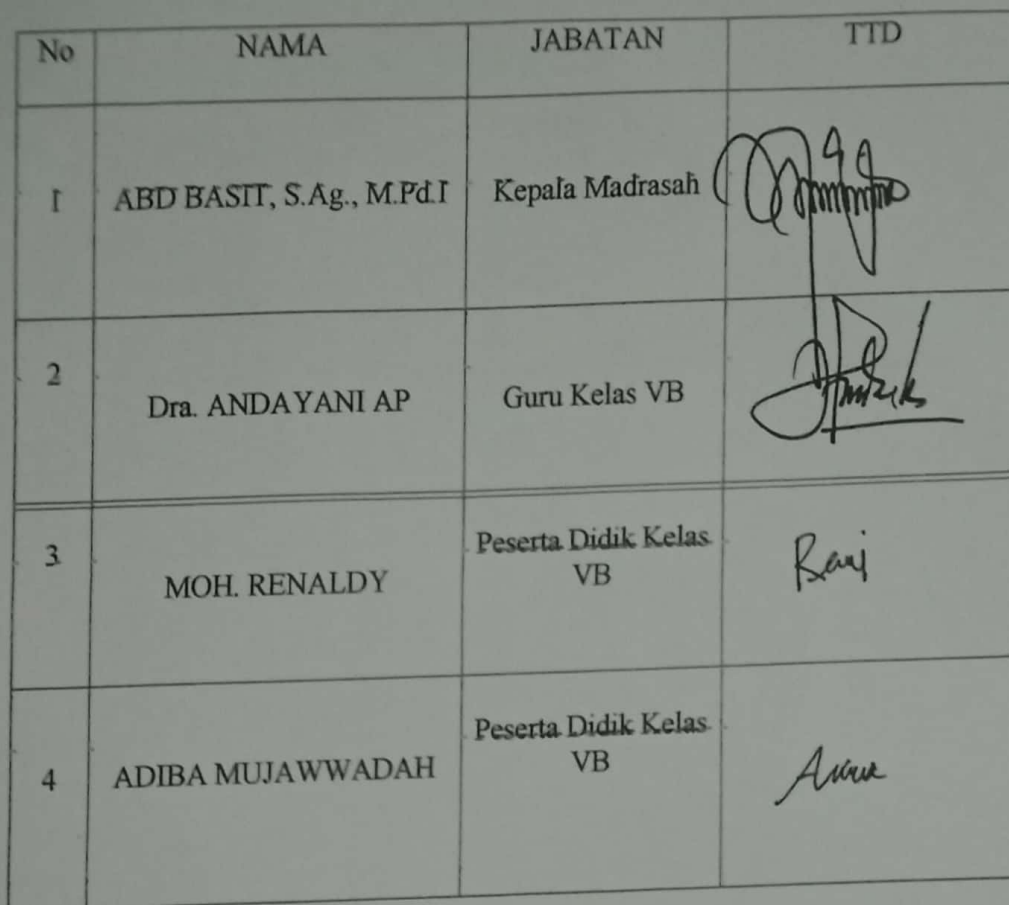 No NAMA JABATAN TTD
1 ABD BASIT, S.Ag., M.Pd.I Kepala Madrasah
2 Dra. ANDAYANI AP Guru Kelas VB
3 MOH. RENALDY Peserta Didik Kelas
VB
4 ADIBA MUJAWWADAH Peserta Didik Kelas
VB